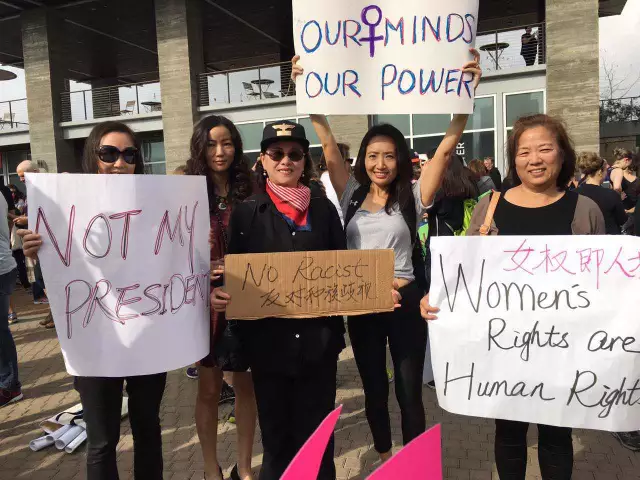 OUR♀MINDS
OUR POWER
NOT MY
PRESIDENT
No Racist
反对种族歧视
女权即人
Women's
Rights are
Human Rights